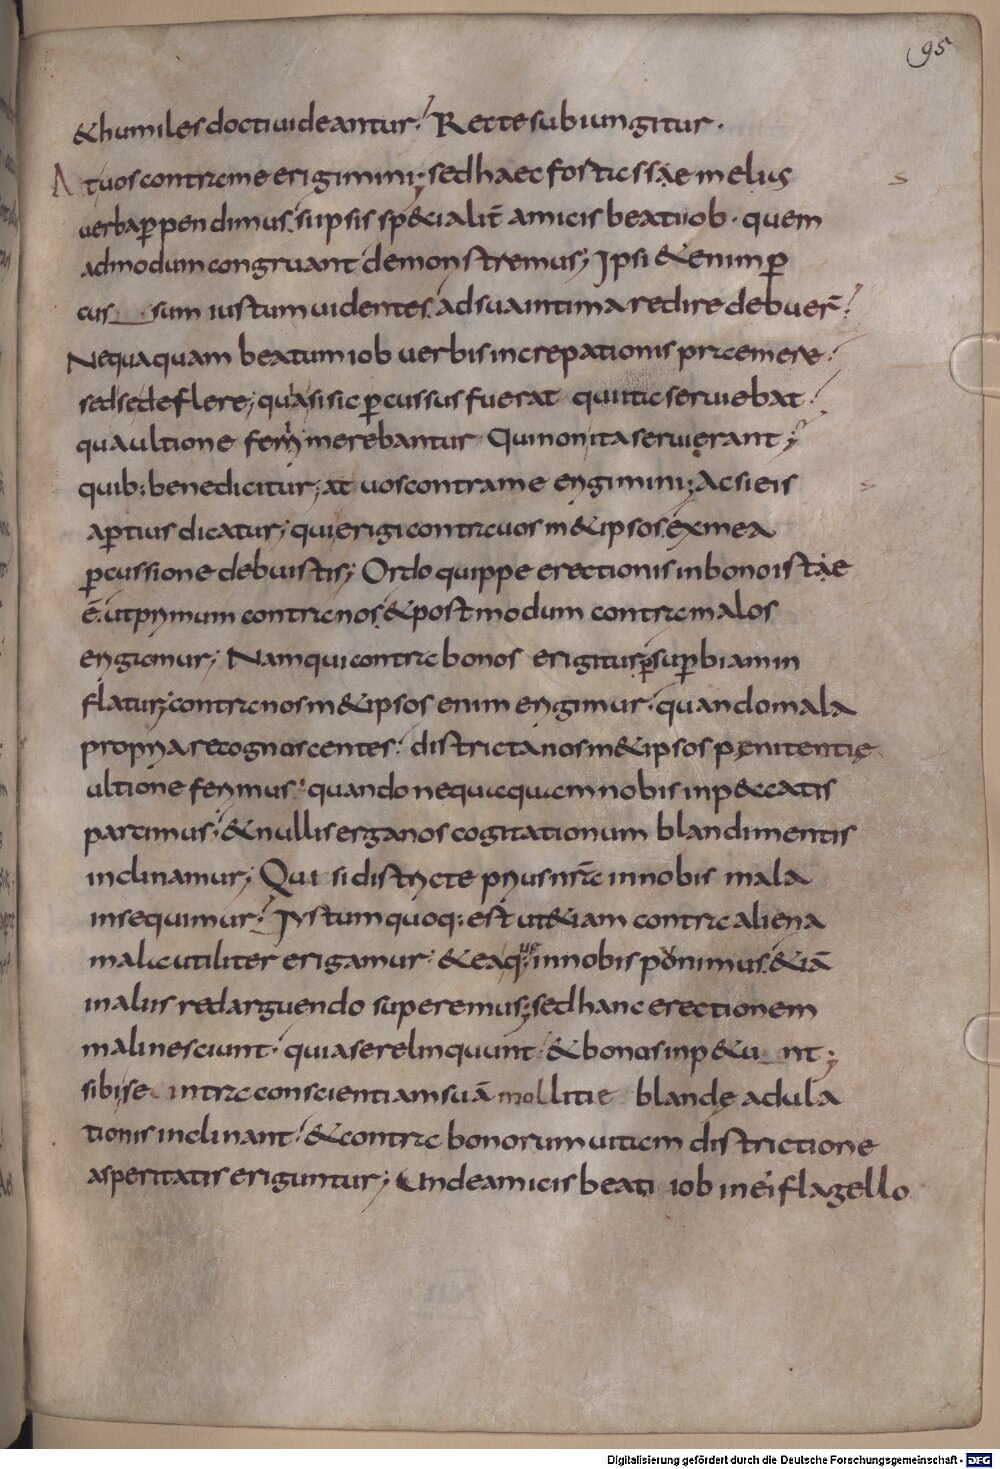 95
& humiles docti uideantur. Recte subiungitur.
At uos contra me erigimini; sed haec fortasse melius
uerba perpendimus. si ipsis specialiter amicis beati iob. quem
admodum congruant demonstremus; Ipsi &enim per
cus sum iustum uidentes. ad sua intima redire debuer̄.
Nequaquam beatum iob uerbis increpationis premere.
sed sede flere; quasi sic percussus fuerat qui tic seruiebat.
qua ultione feriri merebantur Qui non ita seruierant;
quib: benedicitur; at uos contra me erigimini; Ac si eis
apertius dicatur; qui erigi contra uos m&ipsos. ex mea
percussione debuistis; Ordo quippe erectionis in bono istae
ē. ut primum contra nos. & post modum contra malos
erigamur; Nam qui contra bonos erigitur. per superbiam in
flatur; contra nosm&ipsos enim erigimur. quando mala
propria recognoscentes. districta nosm&ipsos penitentie
ultione ferimus. quando nequaquam nobis in peccatis
parcimus; & nullis erga nos cogitationum blandimentis
inclinamur; Qui si districte prius nr̄a in nobis mala
insequimur. Iustum quoq: est ut &iam contra aliena
mala utiliter erigamur. & ea que in nobis ponimus. &iā
in aliis redarguendo superemus; sed hanc erectionem
mali nesciunt. quia se relinquunt. & bonos inp&u nt;
sibi se intra conscientiam suā mollitie blande adula
tionis inclinant. & contra bonorum uitam districtione
asperitatis eriguntur; Unde amicis beati iob in ei flagello
Digitalisierung gefördert durch die Deutsche Forschungsgemeinschaft - DFG